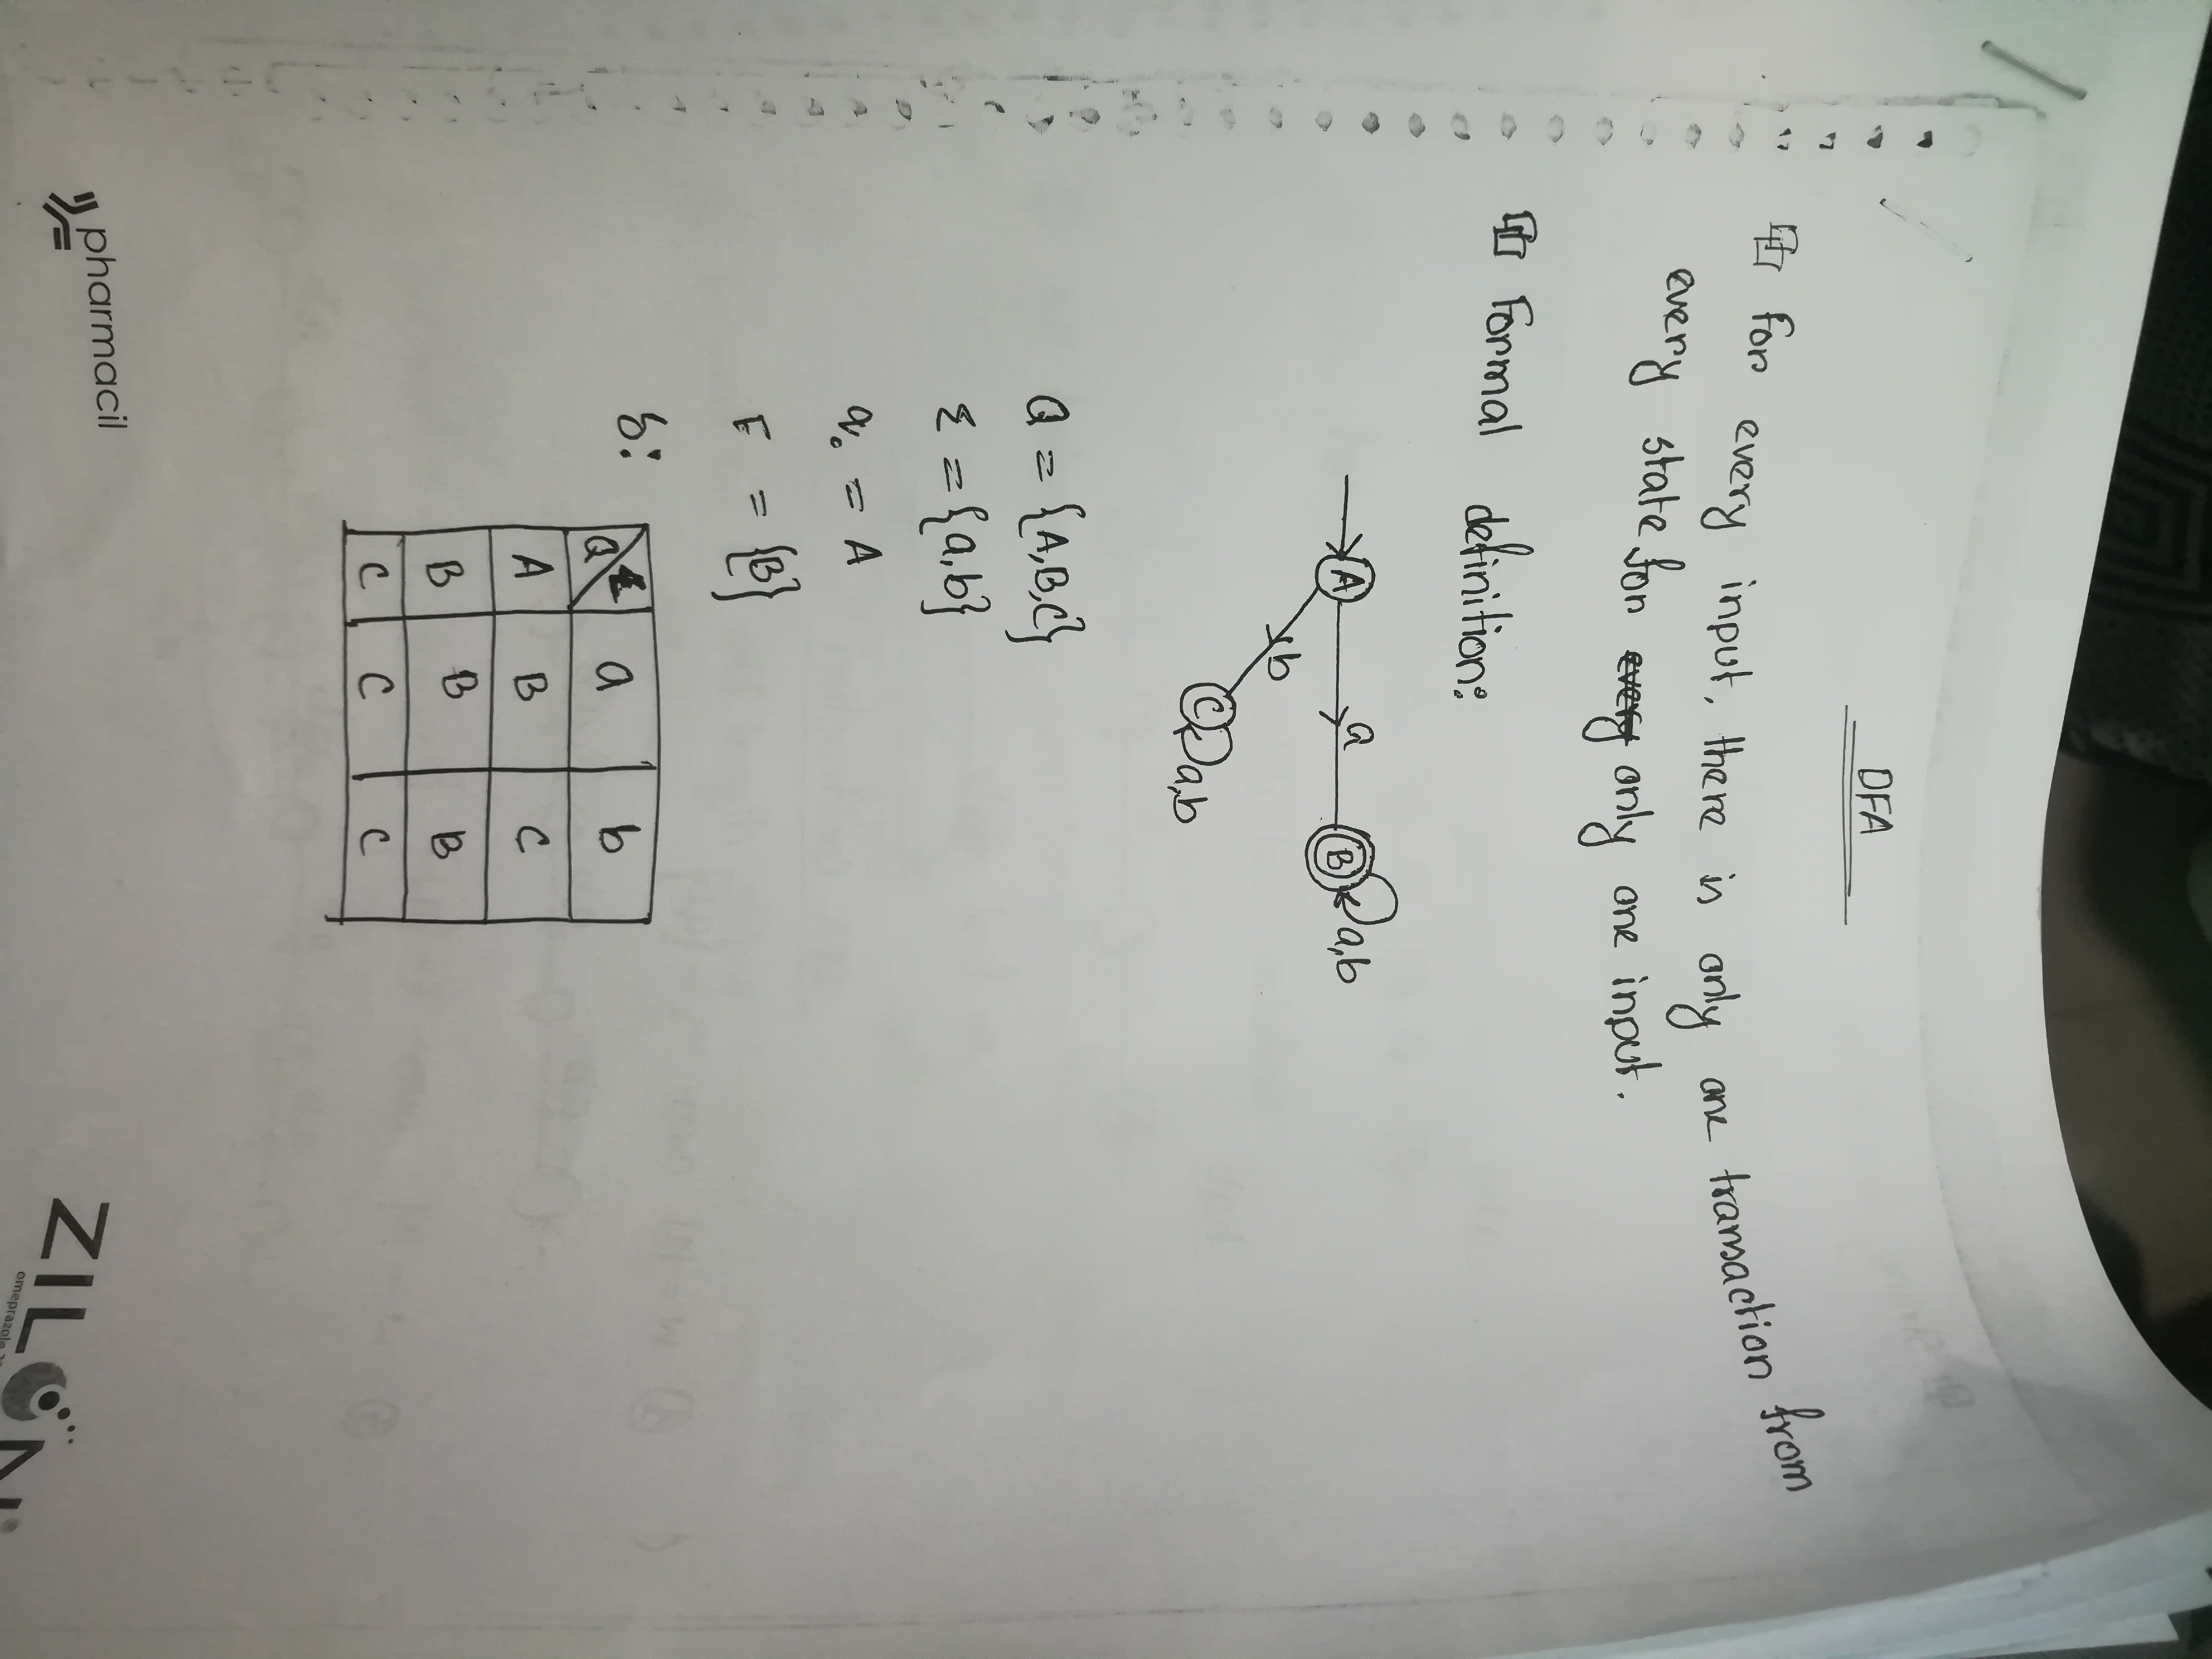 DFA
For every input, there is only one transaction from
every state for every only one input.
Formal definition:
A a B a,b
b
C a,b
Q = {A,B,C}
Σ = {a,b}
q₀ = A
F = {B}
δ:
Q Σ a b
A B C
B B B
C C C
pharmacil
ZILON
omeprazole